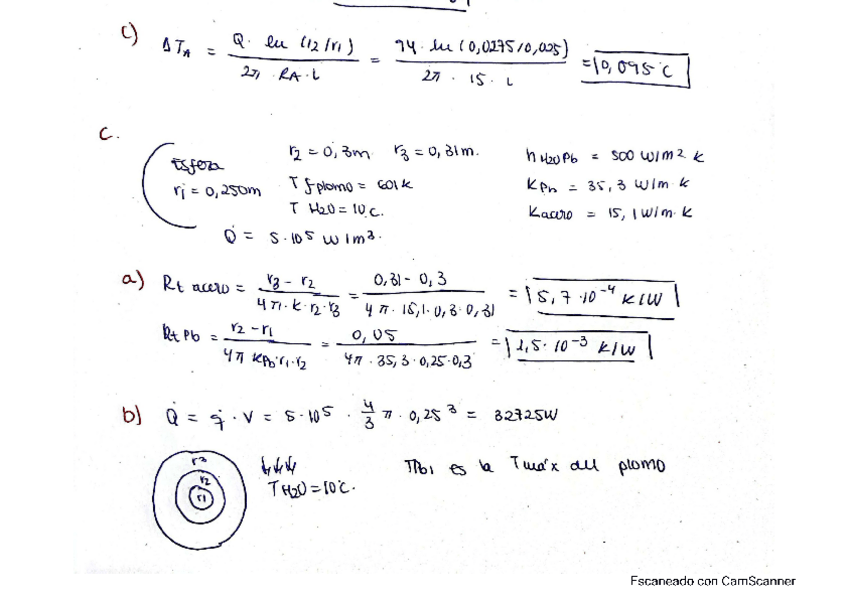 c) ΔT_A = Q · ln (r2/r1) / 2π · RA · L = 94 · ln (0,0275/0,025) / 2π · 15 · L = 0,095°C
C.
Esfera r2 = 0,3m r3 = 0,31m. hH2OPb = 500 W/m² K
ri = 0,250m T fplomo = 601K KPb = 35,3 W/m·K
T H2O = 10°C. Kacero = 15,1 W/m·K
Q̇ = 5·10⁵ W/m³.
a) Rt acero = r3 - r2 / 4π·K·r2·r3 = 0,31 - 0,3 / 4π·15,1·0,3·0,31 = 5,7·10⁻⁴ K/W
Rt Pb = r2 - r1 / 4π KPb·r1·r2 = 0,05 / 4π·35,3·0,25·0,3 = 1,5·10⁻³ K/W
b) Q̇ = q̇ · V = 5·10⁵ · 4/3 π · 0,25³ = 32725W
r3 r2 r1
TH2O = 10°C. TPb1 es la Tmáx del plomo
Escaneado con CamScanner